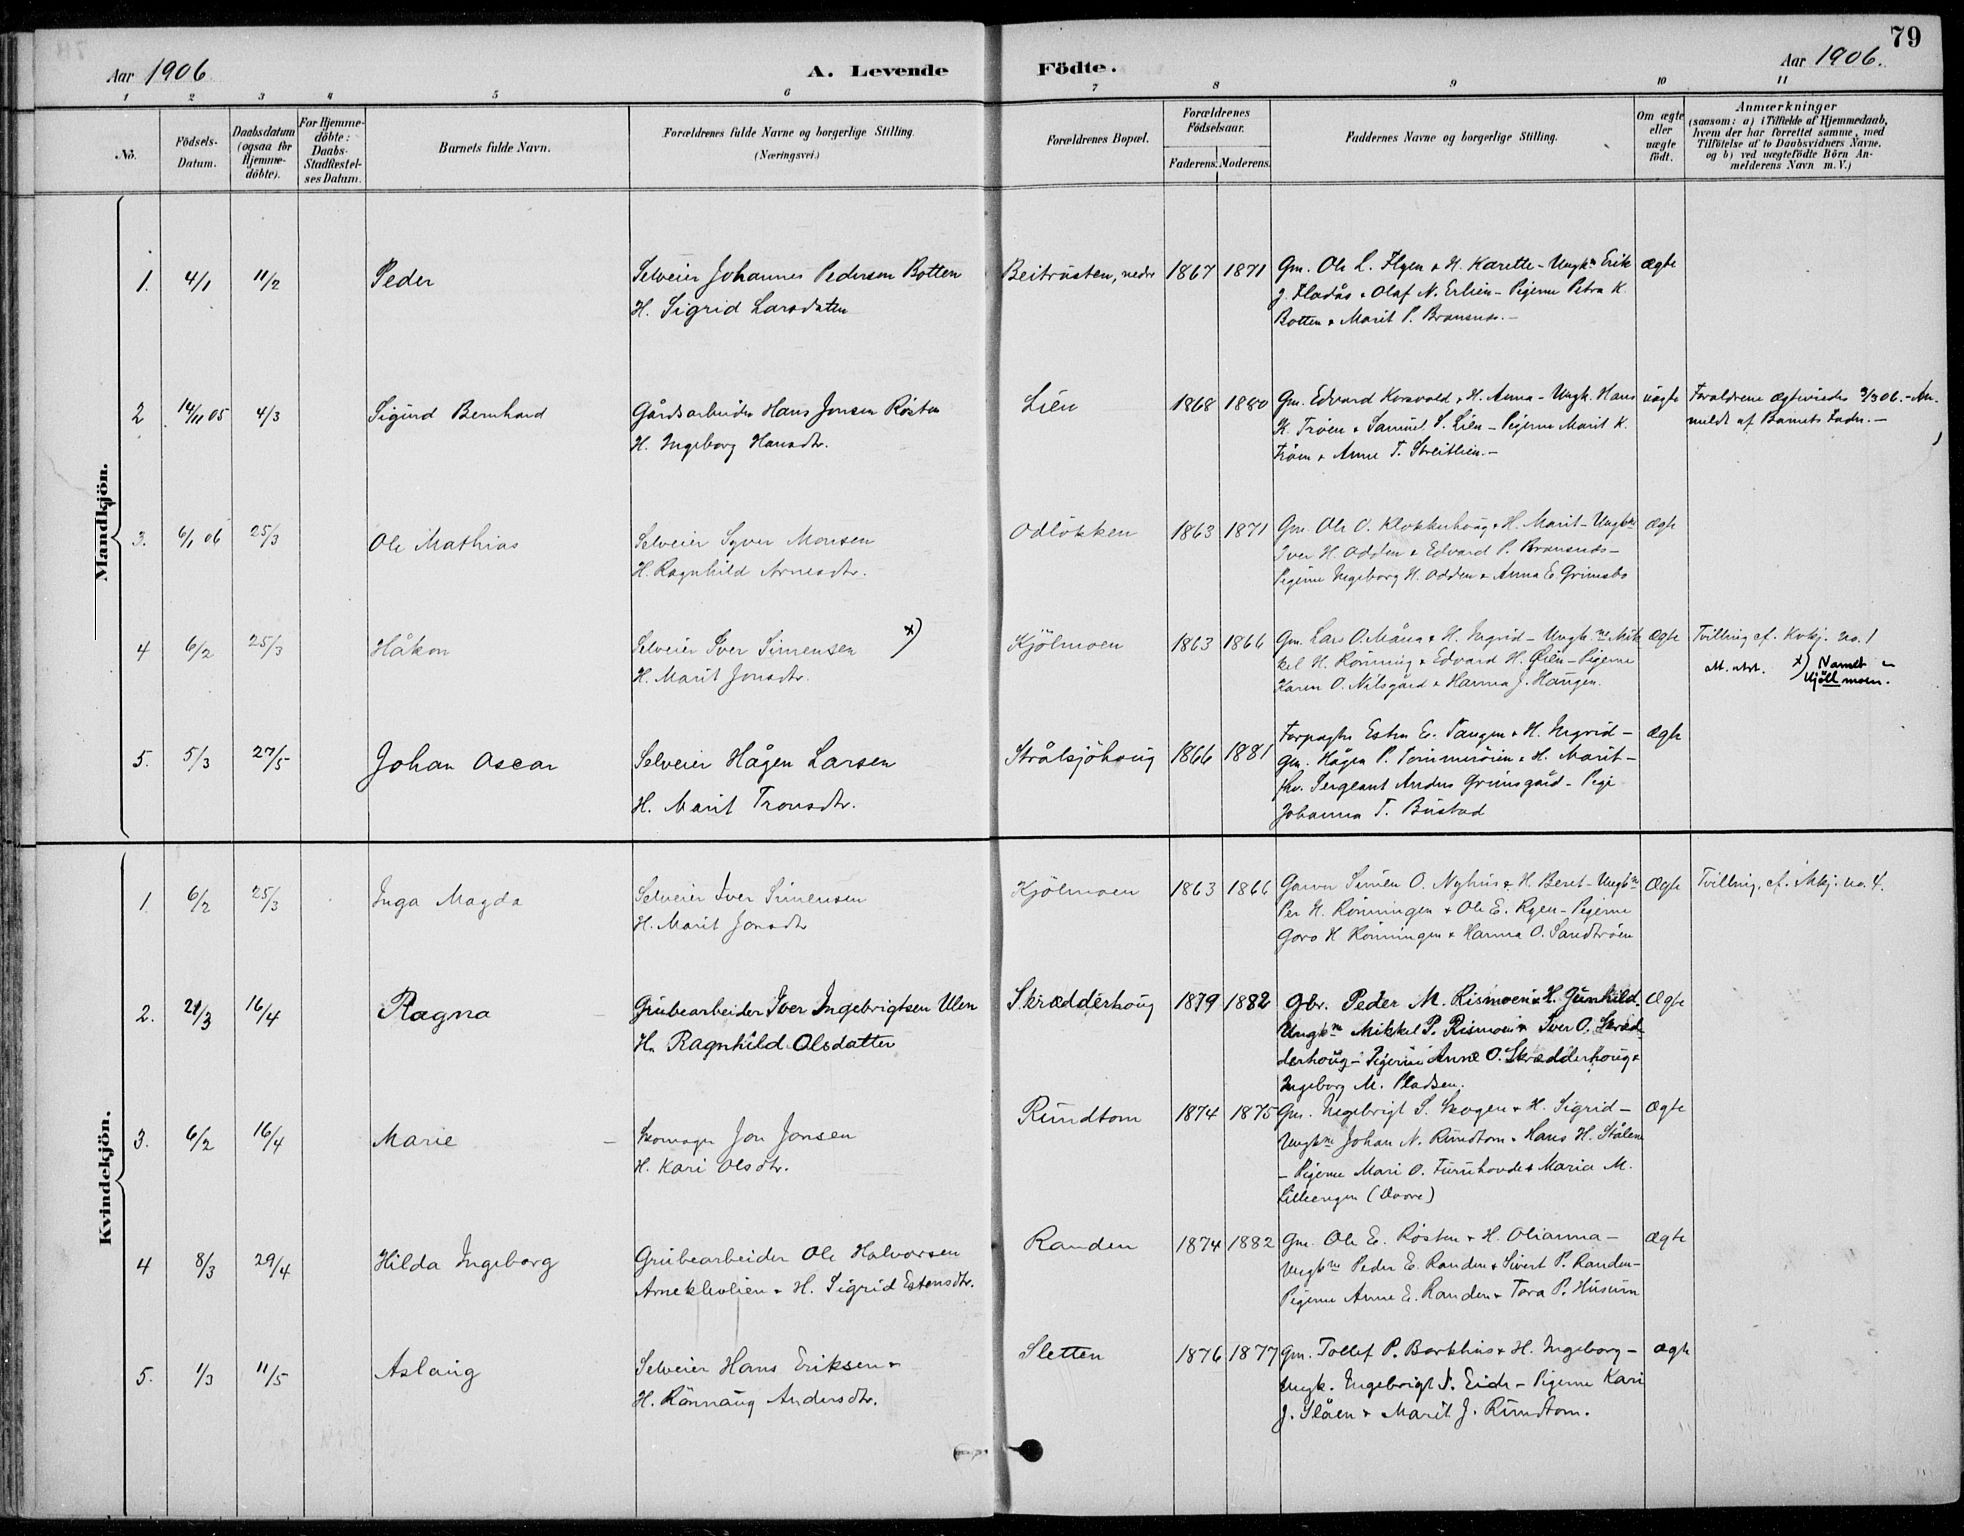 79
Aar 1906
A. Levende Födte.
Aar 1906.
1 2 3 4 5 6 7 8 9 10 11
No.
Födsels-
Datum.
Daabsdatum
(ogsaa for
Hjemme-
döbte).
For Hjemme-
döbte:
Daabs-
Stadfæstel-
ses Datum.
Barnets fulde Navn.
Forældrenes fulde Navne og borgerlige Stilling.
(Næringsvei.)
Forældrenes Bopæl.
Forældrenes
Födselsaar.
Faderens. Moderens.
Faddernes Navne og borgerlige Stilling.
Om ægte
eller
uægte
födt.
Anmærkninger
(saasom: a) i Tilfælde af Hjemmedaab,
hvem der har forrettet samme, med
Tilföielse af to Daabsvidners Navne,
og b) ved uægtefödte Börn An-
melderens Navn m. V.)
Mandkjön.
1. 4/1 11/2 Peder
Selveier Johannes Pedersen Botten
H. Sigrid Larsdatter
Beitrusten, nedre 1867 1871
Gm. Ole L. Flyen & H. Karette - Ungkn Erik
J. Fladås & Olaf N. Erlien - Pigerne Petra K.
Botten & Marit P. Brænnæs. -
Ægte
2 14/11 05 4/3 Sigurd Bernhard
Gårdsarbeider Hans Jonsen Røsten
H. Ingeborg Hansdtr.
Lien 1868 1880
Gm. Edvard Korsvold & H. Anna - Ungk. Hans
K. Troen & Samuel S. Lien - Pigerne Marit K.
Tröen & Anne T. Streitlien. -
uægte
Forældrene ægteviedes 2/3 06. - An-
meldt af Barnets Fader. -
3. 6/1 06 25/3 Ole Mathias
Selveier Syver Monsen
H. Ragnhild Arnesdtr.
Odlökken 1863 1871
Gm. Ole O. Klokkerhoug & H. Marit - Ungkm
Iver H. Odden & Edvard P. Brænnæs -
Pigerne Ingeborg H. Odden & Anna E. Grimsbo
Ægte
4 6/2 25/3 Håkon
Selveier Iver Simensen x)
H. Marit Jonsdtr.
Kjölmoen 1863 1866
Gm. Lars O. Måna & H. Ingrid - Ungk.ne Mik
kel H. Rönning & Edvard H. Öien - Pigerne
Karen O. Nilsgård & Hanna J. Haugen.
Ægte
Tvilling cf. Kvkj. no. 1
x) Navnet
Kjöllmoen.
5. 5/3 27/5 Johan Oscar
Selveier Hågen Larsen
H. Marit Tronsdtr.
Strålsjöhoug 1866 1881
Forpagter Esten E. Tangen & H. Ingrid -
Gm. Hågen P. Tömmeröien & H. Marit -
fhv. Sergeant Anders Grimsgård - Pige
Johanna T. Bustad
Ægte
Kvindekjön.
1 6/2 25/3 Inga Magda
Selveier Iver Simensen
H. Marit Jonsdtr
Kjölmoen 1863 1866
Garver Simen O. Nyhus & H. Beret - Ungkm
Per H. Rönningen & Ole E. Ryen - Pigerne
Goro H Rönningen & Hanna O. Sandtröen
Ægte
Tvilling, cf. Mkj. no. 4.
2. 21/3 16/4 Ragna
Grubearbeider Iver Ingebrigtsen Ulen
H. Ragnhild Olsdatter
Skrædderhoug 1879 1882
Gbr. Peder M. Rismoen & H. Gunhild.
Ungkm Mikkel P. Rismoen & Iver O. Skræd-
derhoug - Pigerne Anne O. Skrædderhoug &
Ingeborg M. Pladsen.
Ægte
3. 6/2 16/4 Marie
Skomager Jon Jonsen
H. Kari Olsdtr.
Rundtom 1874 1875
Gm. Ingebrigt S. Skogen & H. Sigrid -
Ungkm Johan N. Rundtom & Hans H. Stålen
- Pigerne Mari O. Furuhovde & Maria M.
Lilleengen (Dovre)
Ægte
4 8/3 29/4 Hilda Ingeborg
Grubearbeider Ole Halvorsen
Arnekleivlien & H. Sigrid Estensdtr.
Randen 1874 1882
Gm. Ole E. Røsten & H. Olianna -
Ungkm Peder E. Randen & Sivert P. Randen -
Pigerne Anne E. Randen & Tora P. Husum
Ægte
5. 1/3 11/5 Aslaug
Selveier Hans Eriksen &
H. Rönnaug Andersdtr.
Sletten 1876 1877
Gm. Tollef P. Barkhus & H. Ingeborg -
Ungk. Ingebrigt T. Eide - Pigerne Kari
J. Slåen & Marit J. Rundtom.
Ægte